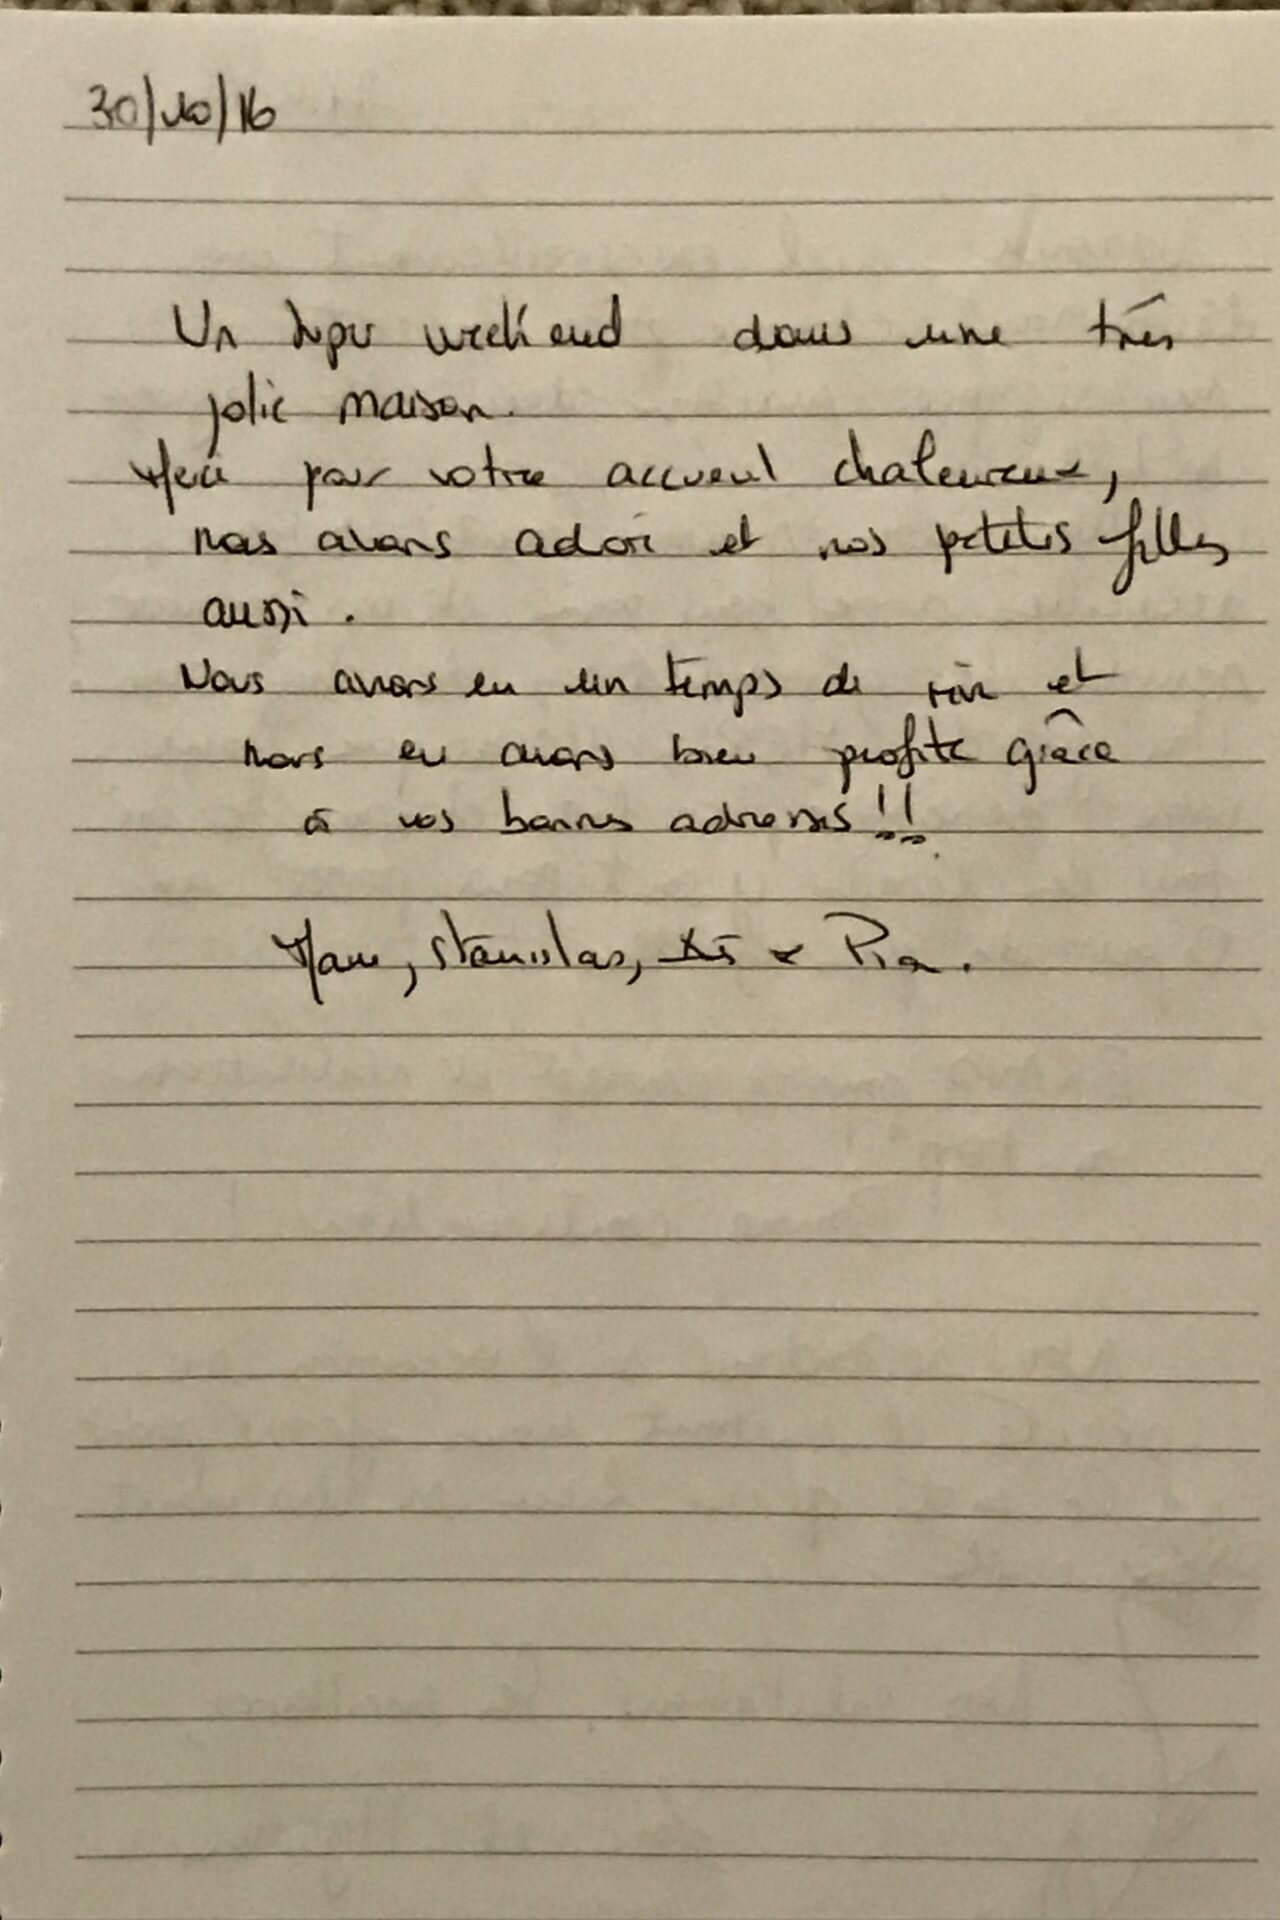 30/10/16
Un super weekend dans une très
jolie maison.
Merci pour votre accueil chaleureux,
nous avons adoré et nos petites filles
aussi.
Nous avons eu un temps de rêve et
nous en avons bien profité grâce
à vos bonnes adresses !!
Stanislas, & Pia.